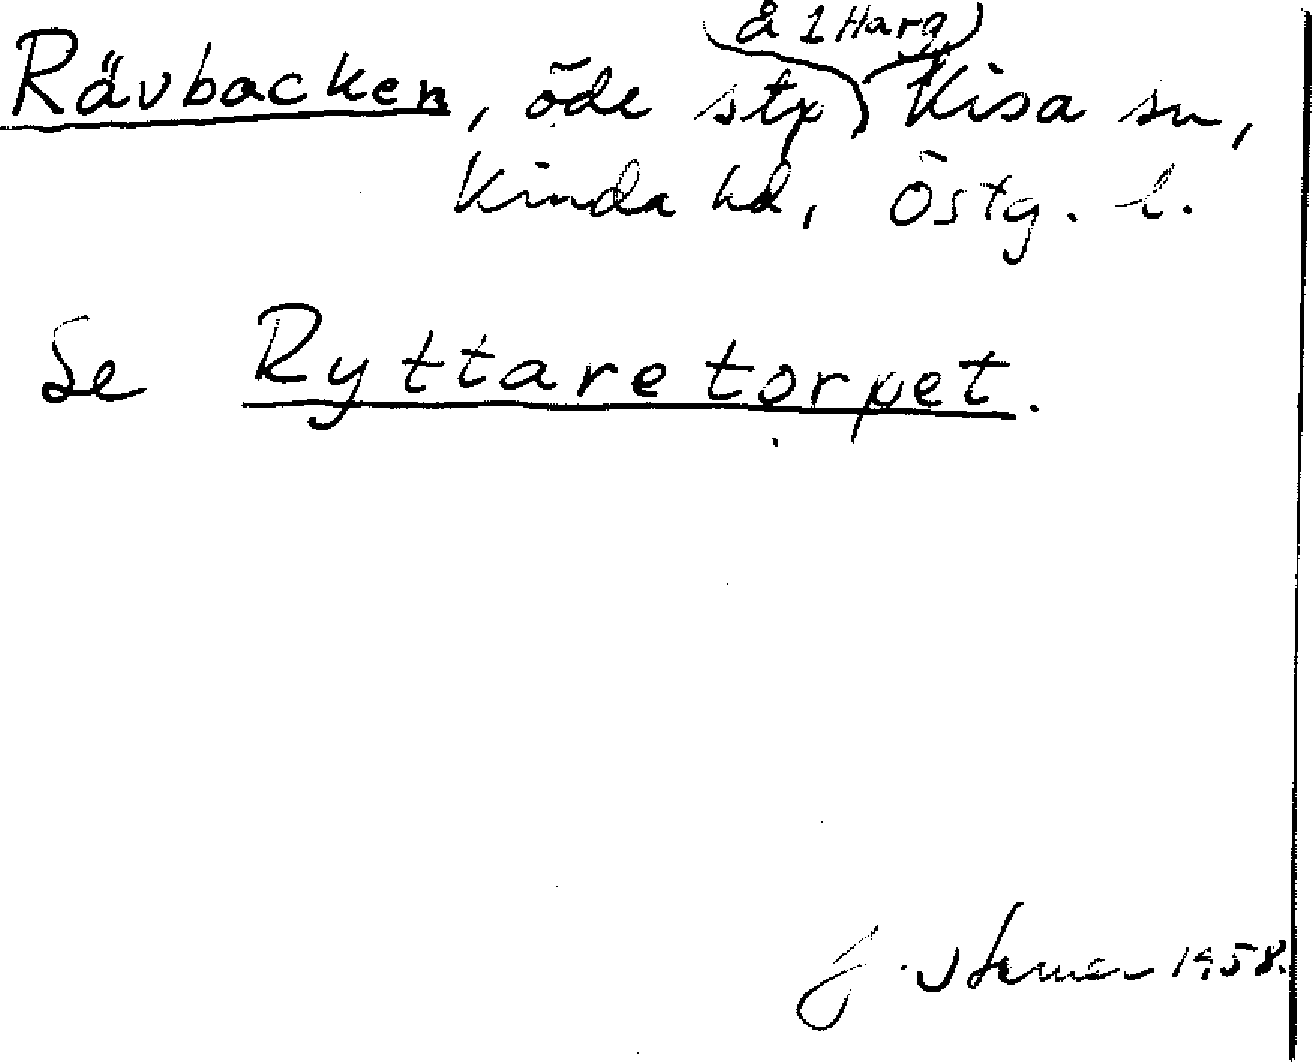 å 1 Harg
Rävbacken, öde stp Kisa sn,
Kinda hd, Östg. l.
Se Ryttaretorpet.
1958.